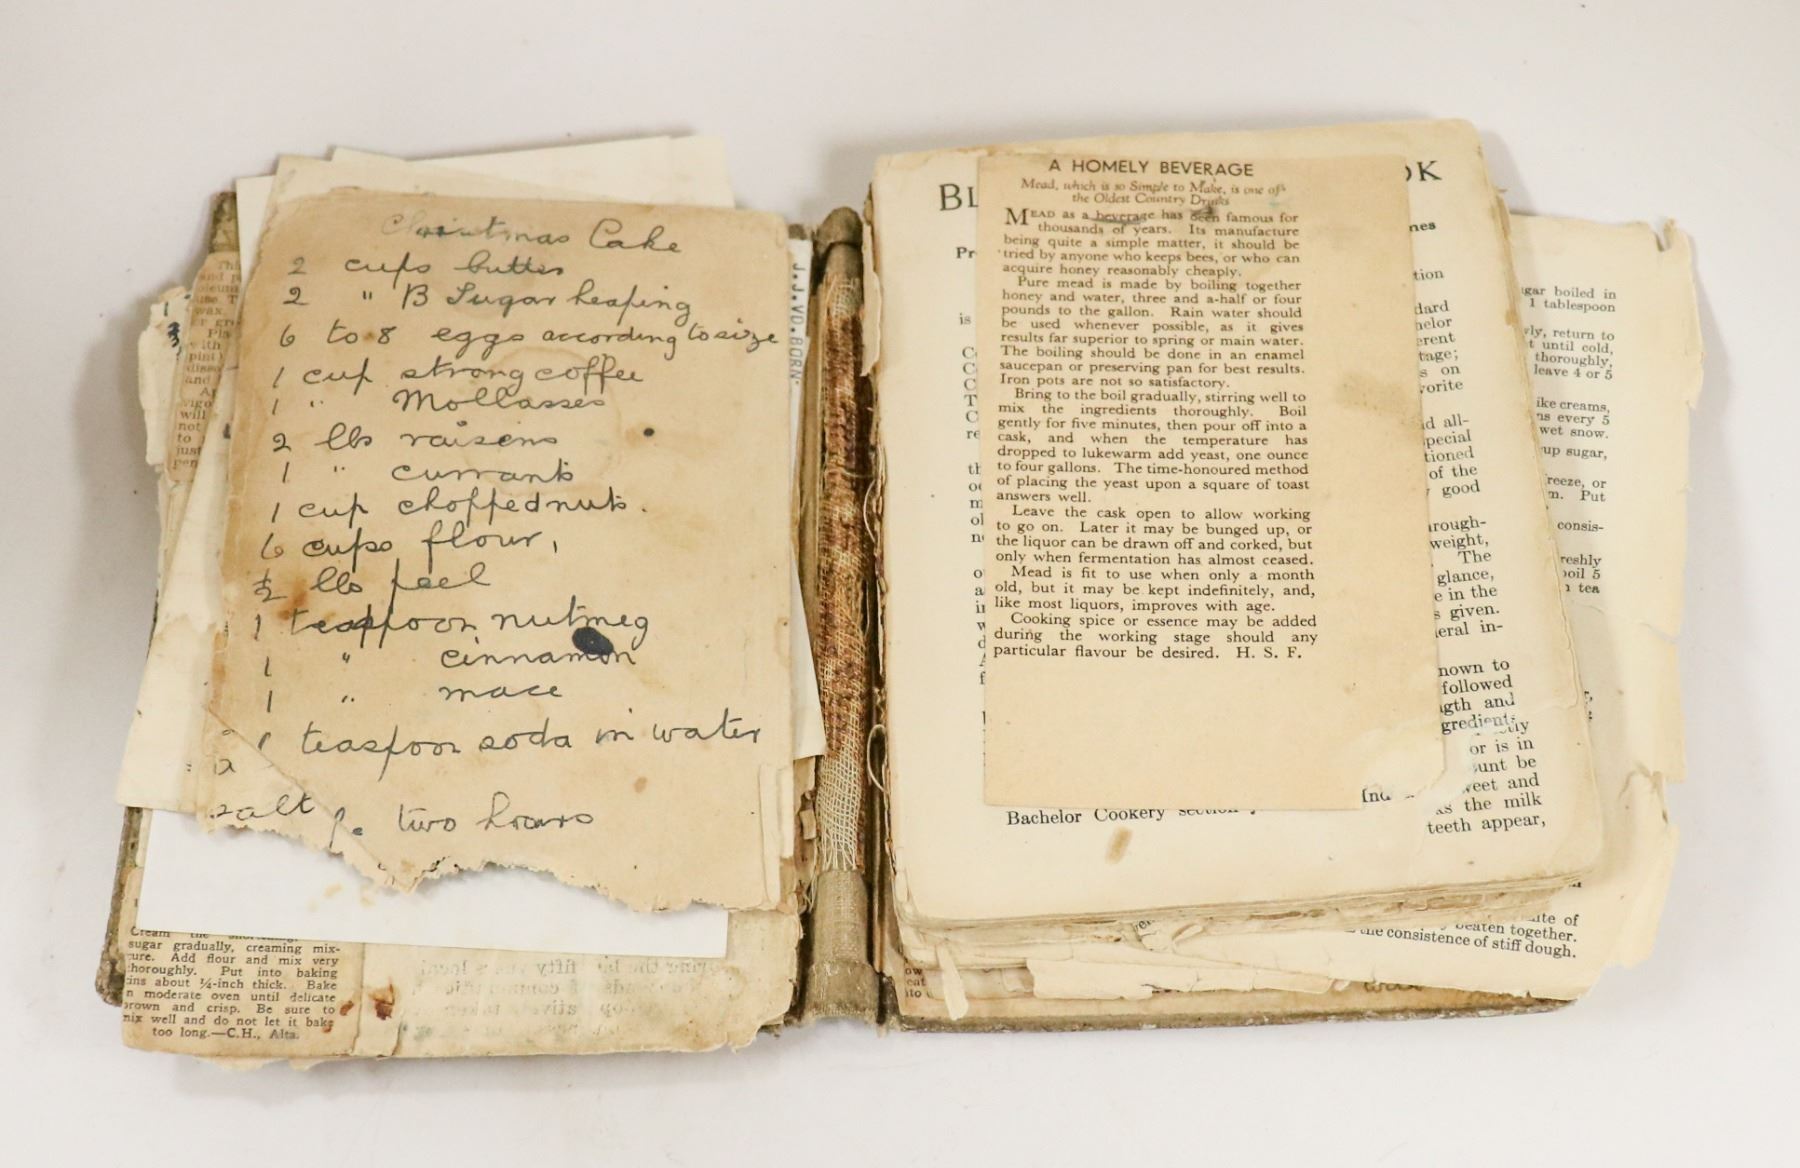 Christmas Cake
2 cups butter
2 " B Sugar heaping
6 to 8 eggs according to size
1 cup strong coffee
1 " Mollasses
2 lbs raisens
1 " currants
1 cup chopped nuts.
6 cups flour,
½ lbs peel
1 teaspoon nutmeg
1 " cinnamon
1 " mace
1 teaspoon soda in water
salt
two hours
J.J.VD.BORN.
Cream the shortening,
sugar gradually, creaming mix-
ture. Add flour and mix very
thoroughly. Put into baking
tins about ¼-inch thick. Bake
n moderate oven until delicate
brown and crisp. Be sure to
mix well and do not let it bake
too long.—C.H., Alta.
A HOMELY BEVERAGE
Mead, which is so Simple to Make, is one of
the Oldest Country Drinks
MEAD as a beverage has been famous for
thousands of years. Its manufacture
being quite a simple matter, it should be
tried by anyone who keeps bees, or who can
acquire honey reasonably cheaply.
Pure mead is made by boiling together
honey and water, three and a-half or four
pounds to the gallon. Rain water should
be used whenever possible, as it gives
results far superior to spring or main water.
The boiling should be done in an enamel
saucepan or preserving pan for best results.
Iron pots are not so satisfactory.
Bring to the boil gradually, stirring well to
mix the ingredients thoroughly. Boil
gently for five minutes, then pour off into a
cask, and when the temperature has
dropped to lukewarm add yeast, one ounce
to four gallons. The time-honoured method
of placing the yeast upon a square of toast
answers well.
Leave the cask open to allow working
to go on. Later it may be bunged up, or
the liquor can be drawn off and corked, but
only when fermentation has almost ceased.
Mead is fit to use when only a month
old, but it may be kept indefinitely, and,
like most liquors, improves with age.
Cooking spice or essence may be added
during the working stage should any
particular flavour be desired. H. S. F.
BL
OK
Pr
mes
tion
is
dard
helor
erent
tage;
s on
vorite
d all-
pecial
tioned
of the
good
rough-
weight,
The
glance,
e in the
s given.
eral in-
nown to
followed
ngth and
gredients
or is in
unt be
weet and
as the milk
teeth appear,
Bachelor Cookery section
gar boiled in
1 tablespoon
ly, return to
t until cold,
thoroughly,
leave 4 or 5
ike creams,
ns every 5
wet snow.
up sugar,
reeze, or
m. Put
consis-
freshly
boil 5
tea
ite of
beaten together.
the consistence of stiff dough.